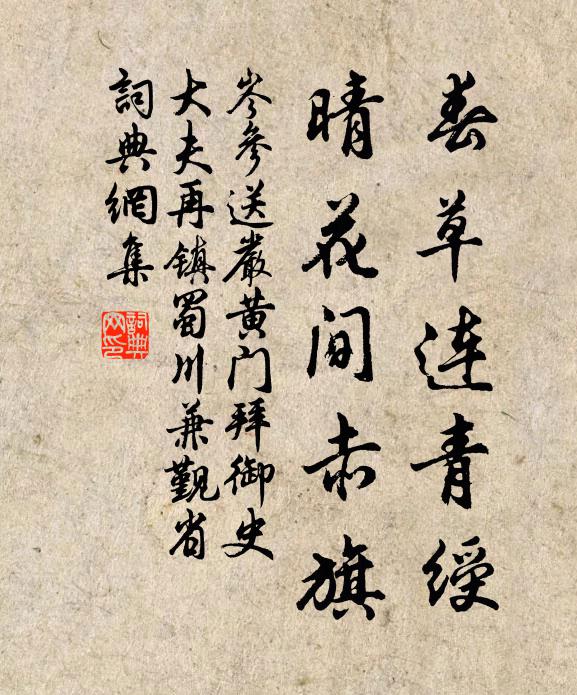 春草連青綬
晴花間赤旗
岑參送嚴黄门拜御史
大夫再鎮蜀川兼觐省
詞典網集
詞典网印